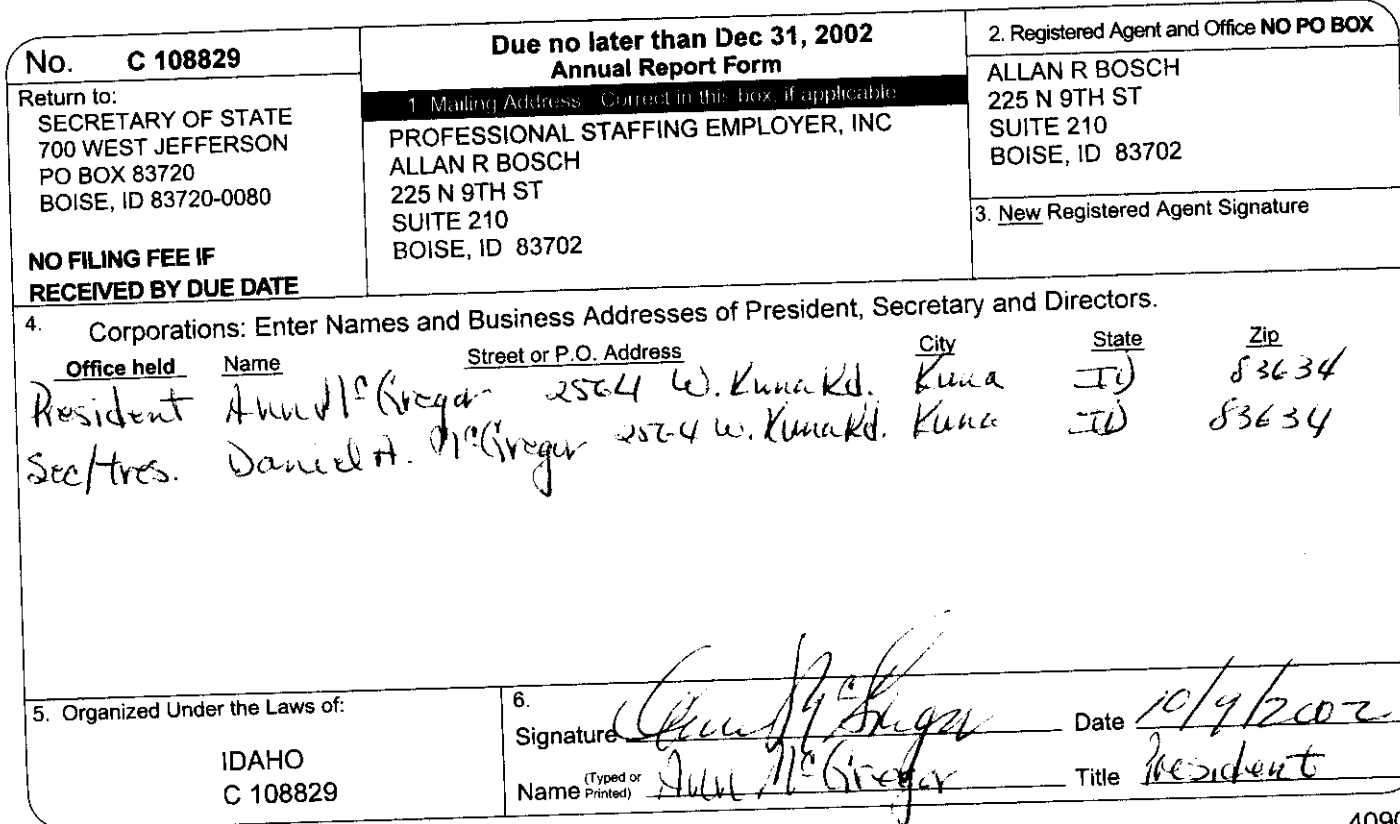 No. C 108829
Return to:
SECRETARY OF STATE
700 WEST JEFFERSON
PO BOX 83720
BOISE, ID 83720-0080
NO FILING FEE IF
RECEIVED BY DUE DATE
Due no later than Dec 31, 2002
Annual Report Form
1. Mailing Address: Correct in this box, if applicable
PROFESSIONAL STAFFING EMPLOYER, INC
ALLAN R BOSCH
225 N 9TH ST
SUITE 210
BOISE, ID 83702
2. Registered Agent and Office NO PO BOX
ALLAN R BOSCH
225 N 9TH ST
SUITE 210
BOISE, ID 83702
3. New Registered Agent Signature
4. Corporations: Enter Names and Business Addresses of President, Secretary and Directors.
Office held Name Street or P.O. Address City State Zip
President Ann McGregor 2564 W. Kuna Rd. Kuna ID 83634
Sec/tres. Daniel A. McGregor 2564 W. Kuna Rd. Kuna ID 83634
5. Organized Under the Laws of:
IDAHO
C 108829
6.
Signature Ann McGregor Date 10/9/2002
Name (Typed or Printed) Ann McGregor Title President
4090